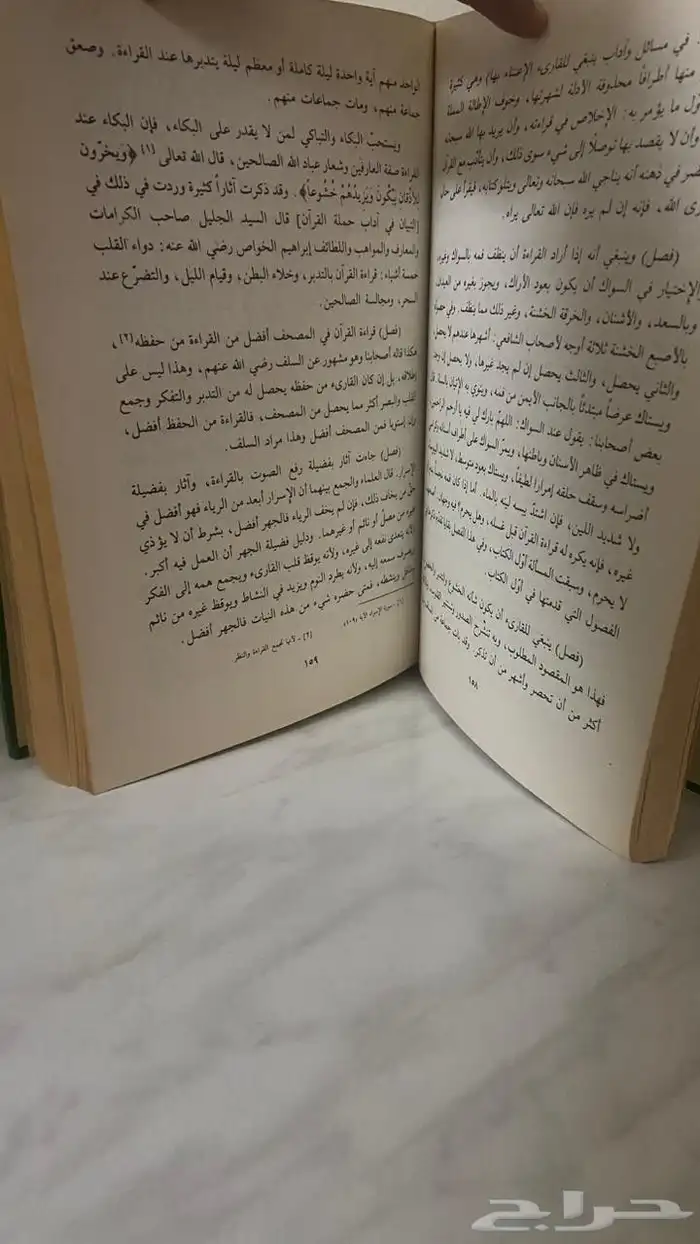 في مسائل وآداب ينبغي للقارىء الإعتناء بها) وهي كثيرة
منها أطرافاً محذوفة الأدلة لشهرتها، وخوف الإطالة
ول ما يؤمر به: الإخلاص في قراءته، وأن يريد بها الله سبحانه
وأن لا يقصد بها توصلاً إلى شيء سوى ذلك، وأن يتأدب مع القرآن
ضر في ذهنه أنه يناجي الله سبحانه وتعالى ويتلو كتابه، فيقرأ على حال
رى الله، فإنه إن لم يره فإن الله تعالى يراه.
(فصل) وينبغي أنه إذا أراد القراءة أن ينظف فمه بالسواك وغيره،
الإختيار في السواك أن يكون بعود الأراك، ويجوز بغيره من العيدان،
وبالسعد، والأشنان، والخرقة الخشنة، وغير ذلك مما ينظف. وفي حصوله
بالأصبع الخشنة ثلاثة أوجه لأصحاب الشافعي: أشهرها عندهم لا يحصل،
والثاني يحصل، والثالث يحصل إن لم يجد غيرها، ولا يحصل إن وجد
ويستاك عرضاً مبتدئاً بالجانب الأيمن من فمه، وينوي به الإتيان بالسنة. قال
بعض أصحابنا: يقول عند السواك: اللهمّ بارك لي فيه يا أرحم الراحمين
ويستاك في ظاهر الأسنان وباطنها، ويمرّ السواك على أطراف أسنانه
أضراسه وسقف حلقه إمراراً لطيفاً، ويستاك بعود متوسط، لا شديد اليبوسة
ولا شديد اللين، فإن اشتدّ يبسه لينه بالماء. أما إذا كان فمه نجساً
غيره، فإنه يكره له قراءة القرآن قبل غسله، وهل يحرم؟ فيه وجهان:
لا يحرم، وسبقت المسألة أوّل الكتاب، وفي هذا الفصل
الفصول التي قدمتها في أوّل الكتاب.
(فصل) ينبغي للقارىء أن يكون شأنه الخشوع والتدبر
فهذا هو المقصود المطلوب، وبه تنشرح الصدور وتستنير
أكثر من أن تحصر وأشهر من أن تذكر. وقد بات جماعة من
١٥٨
الواحد منهم آية واحدة ليلة كاملة أو معظم ليلة يتدبرها عند القراءة. وصعق
جماعة منهم، ومات جماعات منهم.
ويستحبّ البكاء والتباكي لمن لا يقدر على البكاء، فإن البكاء عند
القراءة صفة العارفين وشعار عباد الله الصالحين، قال الله تعالى (١) ﴿وَيخرّون
للأذقان يَبْكُونَ وَيَزيدُهُمْ خُشُوعاً﴾. وقد ذكرت آثاراً كثيرة وردت في ذلك في
[التبيان في آداب حملة القرآن] قال السيد الجليل صاحب الكرامات
والمعارف والمواهب واللطائف إبراهيم الخواص رضي الله عنه: دواء القلب
خمسة أشياء: قراءة القرآن بالتدبر، وخلاء البطن، وقيام الليل، والتضرّع عند
السحر، ومجالسة الصالحين.
(فصل) قراءة القرآن في المصحف أفضل من القراءة من حفظه(٢)،
هكذا قاله أصحابنا وهو مشهور عن السلف رضي الله عنهم، وهذا ليس على
إطلاقه، بل إن كان القارىء من حفظه يحصل له من التدبر والتفكر وجمع
القلب والبصر أكثر مما يحصل من المصحف، فالقراءة من الحفظ أفضل،
وإن إستويا فمن المصحف أفضل وهذا مراد السلف.
(فصل) جاءت آثار بفضيلة رفع الصوت بالقراءة، وآثار بفضيلة
الإسرار. قال العلماء والجمع بينهما أن الإسرار أبعد من الرياء فهو أفضل في
حقّ من يخاف ذلك، فإن لم يخف الرياء فالجهر أفضل، بشرط أن لا يؤذي
غيره من مصلّ أو نائم أو غيرهما. ودليل فضيلة الجهر أن العمل فيه أكبر.
لأنه يتعدى نفعه إلى غيره، ولأنه يوقظ قلب القارىء ويجمع همه إلى الفكر
ويصرف سمعه إليه، ولأنه يطرد النوم ويزيد في النشاط ويوقظ غيره من نائم
وينشطه، فمتى حضره شيء من هذه النيات فالجهر أفضل.
(١) - سورة الإسراء الآية (١٠٩).
(٢) - لأنها تجمع القراءة والنظر.
١٥٩
حراج